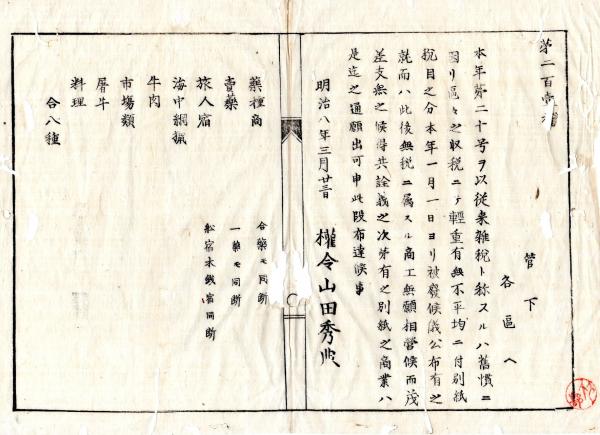 第二百壹号
管下
各區へ
本年第二十号ヲ以従来雑税ト称スルハ舊慣ニ
因リ區々之収税ニテ軽重有無不平均ニ付別紙
税目之分本年一月一日ヨリ被廢候儀公布有之
就而ハ此後無税ニ属スル商工無願相營候而茂
差支無之候得共詮義之次第有之別紙之商業ハ
是迄之通願出可申此段布達候事
明治八年三月廿三日
權令山田秀典
藥種商
合藥モ同断
賣藥
一藥モ同断
旅人宿
船宿木銭宿同断
海中網猟
牛肉
市場類
屠牛
料理
合八種